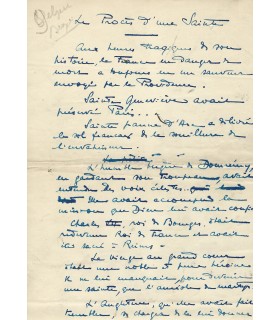 Le Procès d'une Sainte
Aux heures tragiques de son
histoire, la France en danger de
mort a toujours eu un sauveur
envoyé par la Providence.
Sainte Geneviève avait
préservé Paris...
Sainte Jeanne d'Arc a délivré
le sol français de la souillure de
l'envahisseur.
L'humble bergère de Domrémy,
en gardant son troupeau, avait
entendu des voix célestes,
elle avait accompli la
mission que Dieu lui avait confiée
Charles, roi de Bourges, était
redevenu Roi de France et avait
été sacré à Reims.
La vierge au grand cœur
était une noble et pure héroïne
Il ne lui manquait, pour devenir
une sainte, que l'auréole du martyre
L'Angleterre, qu'elle avait fait
trembler, se chargea de lui donner